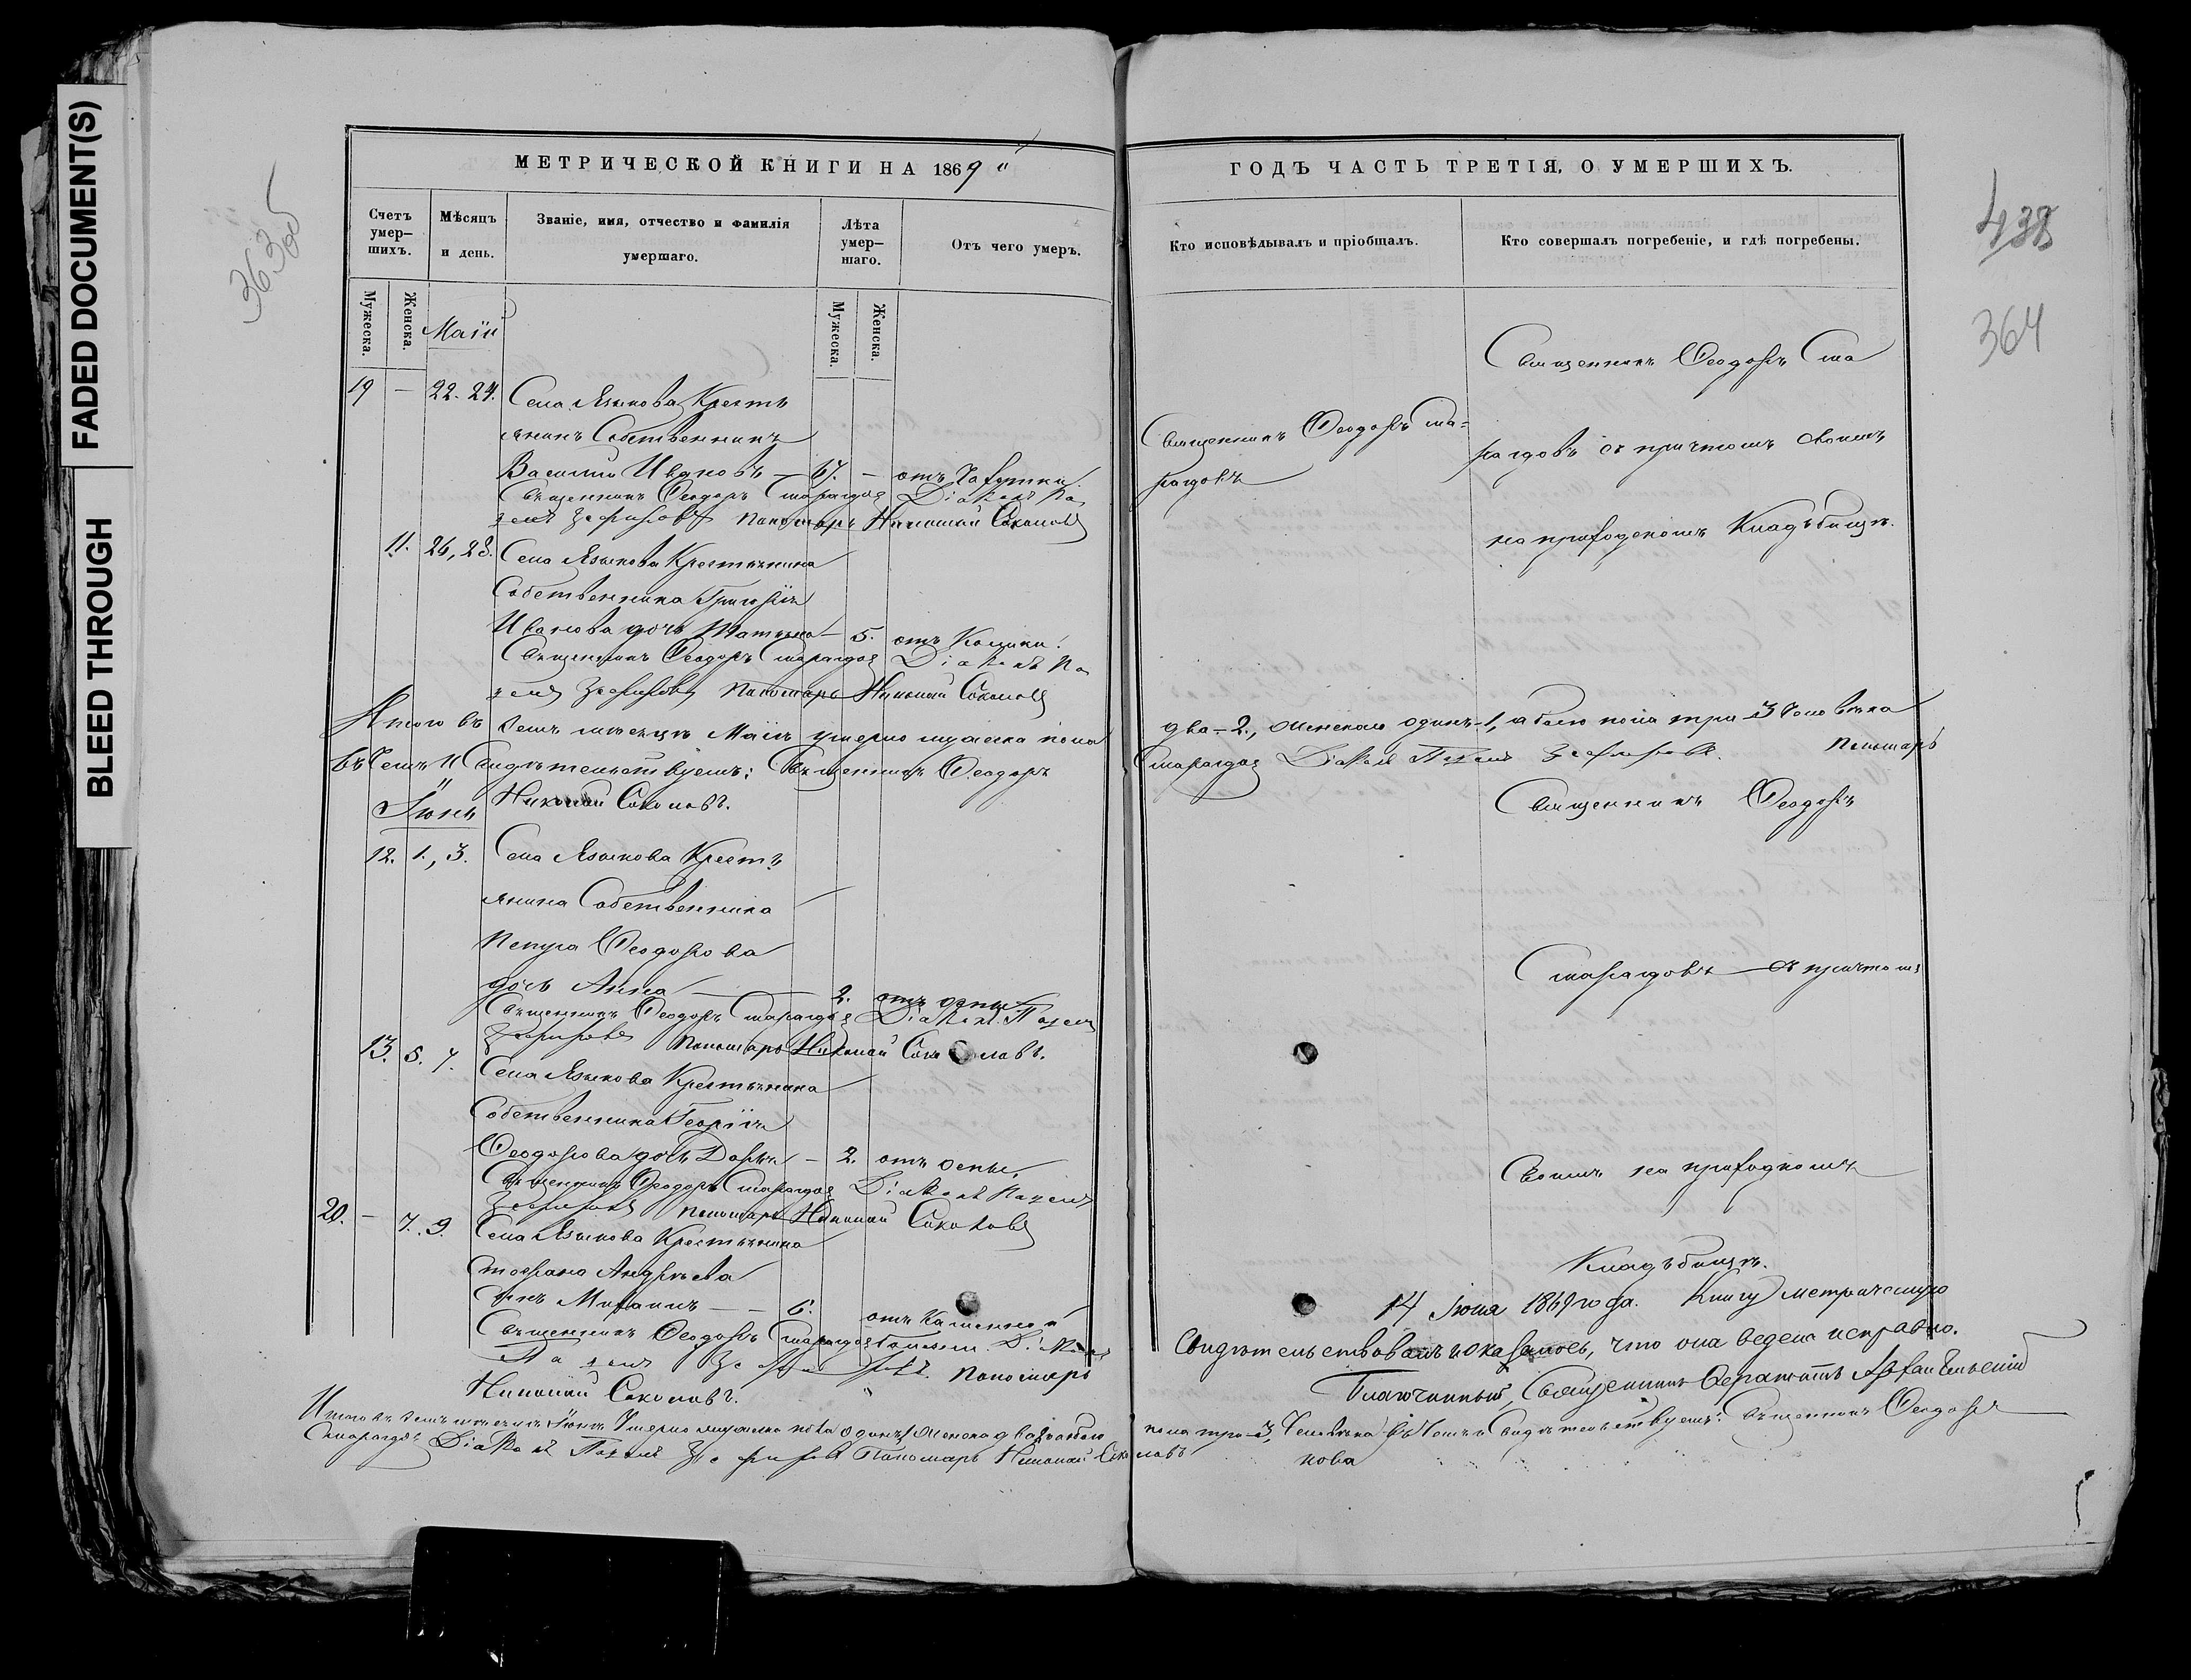 FADED DOCUMENT(S)
BLEED THROUGH
363 об
МЕТРИЧЕСКОЙ КНИГИ НА 1869
Счетъ умер-шихъ.
Мѣсяцъ и день.
Званіе, имя, отчество и фамилія умершаго.
Лѣта умер-шаго.
Отъ чего умеръ.
Мужеска.
Женска.
Маій
Мужеска.
Женска.
19 — 22. 24. Села Языкова Кресть
янинъ Собственникъ
Василій Ивановъ — 67. —
Священникъ Ѳеодоръ Смарагдовъ Діаконъ Па
велъ Зефировъ Пономарь Николай Соколовъ
11. 26, 28. Села Языкова Крестьянина
Собственника Григорія
Иванова дочь Татьяна — 5. отъ Кашля.
Священникъ Ѳеодоръ Смарагдовъ Діаконъ Па
велъ Зефировъ Пономарь Николай Соколовъ
Итого въ семъ мѣсяцѣ Маіѣ умерло мужеска пола
въ чемъ и Свидѣтельствуемъ: Священникъ Ѳеодоръ
Николай Соколовъ.
Іюнь
12. 1., 3. Села Языкова Кресть
янина Собственника
Петра Ѳеодорова
дочь Анна — 2. отъ оспы.
Священникъ Ѳеодоръ Смарагдовъ Діаконъ Павелъ
Зефировъ Пономарь Николай Соколовъ.
13. 5. 7. Села Языкова Крестьянина
Собственника Георгія
Ѳеодорова дочь Дарья — 2. отъ оспы.
Священникъ Ѳеодоръ Смарагдовъ Діаконъ Павелъ
Зефировъ Пономарь Николай Соколовъ
20. — 7. 9. Села Языкова Крестьянина
Стефана Андреева
сынъ Михаилъ — — 6. отъ Каменной
Священникъ Ѳеодоръ Смарагдовъ болѣзни. Діаконъ
Павелъ Зефировъ. Пономарь
Николай Соколовъ.
Итого въ семъ мѣсяцѣ Іюнѣ Умерло мужеска пола одинъ 1 женска два 2 а обоего
Смарагдовъ Діаконъ Павелъ Зефировъ Пономарь Николай Соколовъ
ГОДЪ ЧАСТЬ ТРЕТІЯ, О УМЕРШИХЪ.
Кто исповѣдывалъ и пріобщалъ.
Кто совершалъ погребеніе, и гдѣ погребены.
438
364
Священникъ Ѳеодоръ Сма
Священникъ Ѳеодоръ Сма=
рагдовъ съ причтомъ своимъ
рагдовъ
на приходскомъ Кладъбищѣ.
два – 2., женскаго одинъ – 1, а обоего пола три – 3 Человѣка
Смарагдовъ Діаконъ Павелъ Зефировъ. Пономарь
Священникъ Ѳеодоръ
Смарагдовъ — съ причтомъ
своимъ на приходскомъ
Кладъбищѣ.
14 Іюня 1869 года. Книгу метрическую
Свидѣтельствовалъ и оказалось, что она ведена исправно.
Благочинный, Священникъ Архангельскій
пола три – 3, Человѣка въ чемъ и Свидѣтельствуемъ: Священникъ Ѳеодоръ